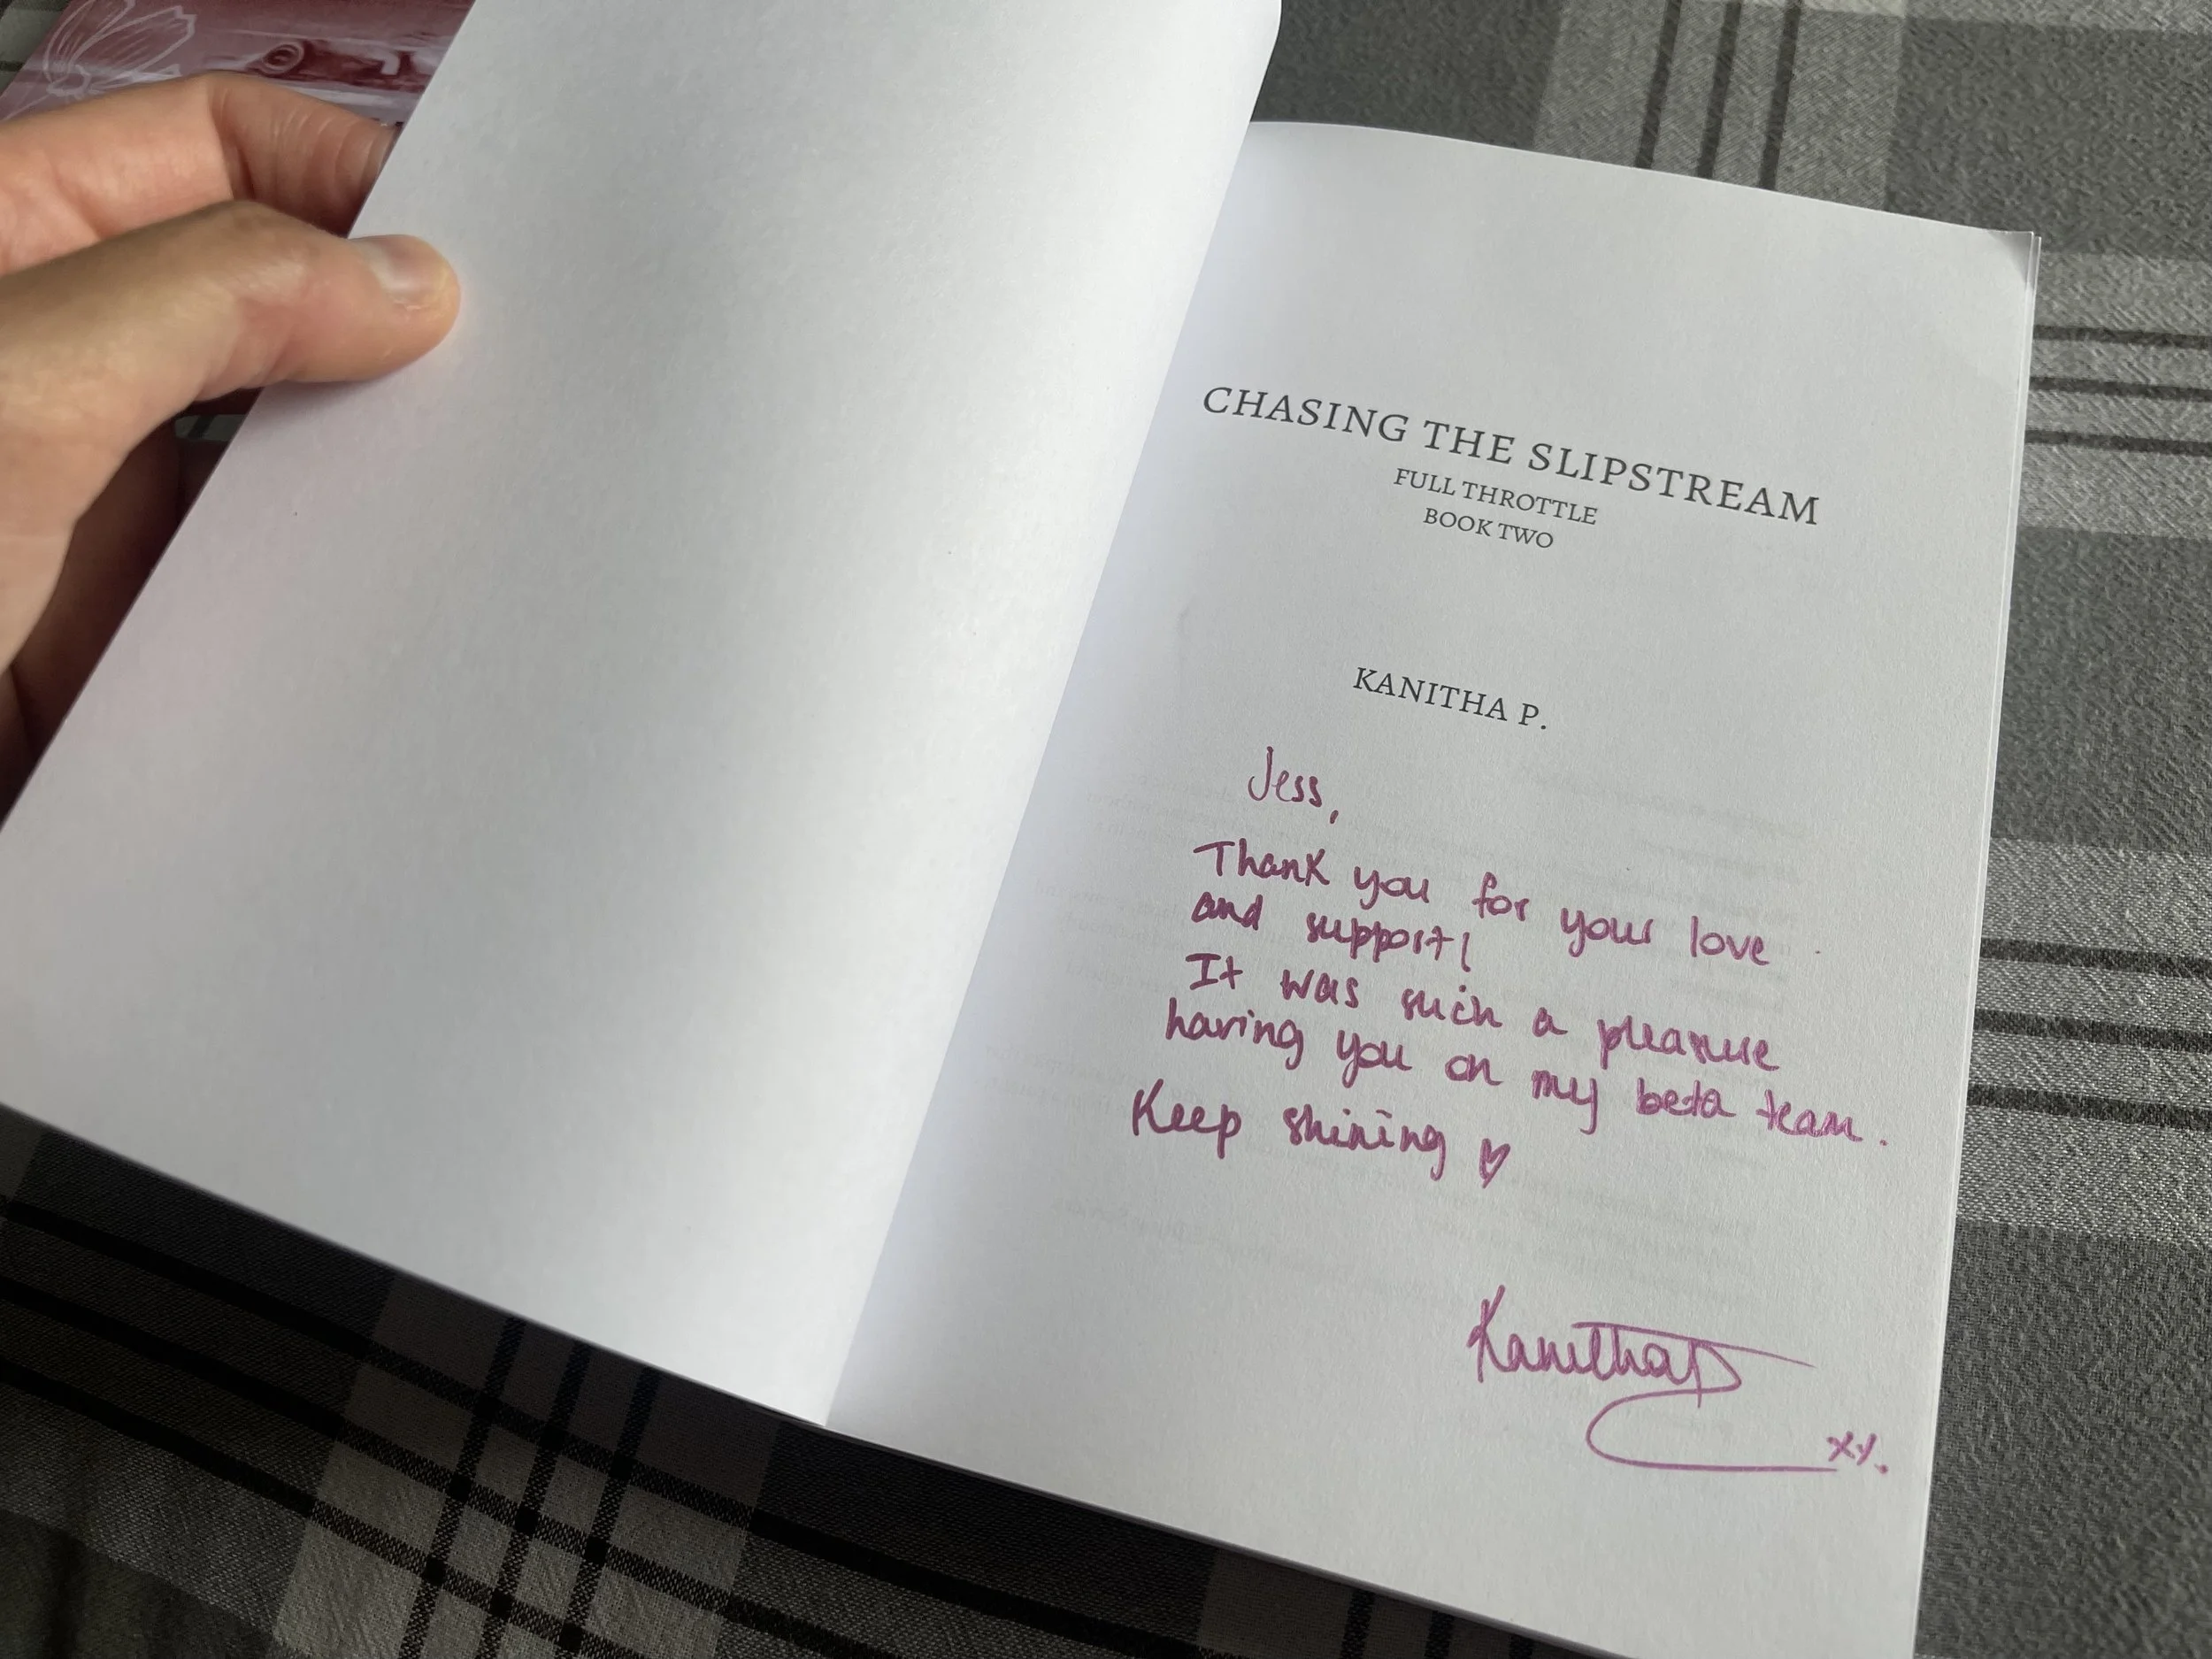 CHASING THE SLIPSTREAM
FULL THROTTLE
BOOK TWO
KANITHA P.
Jess,
Thank you for your love
and support!
It was such a pleasure
having you on my beta team.
Keep shining ♡
KanithaP
xx.